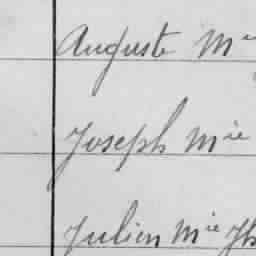 Auguste Mie
Joseph Mie
Julien Mie Jh